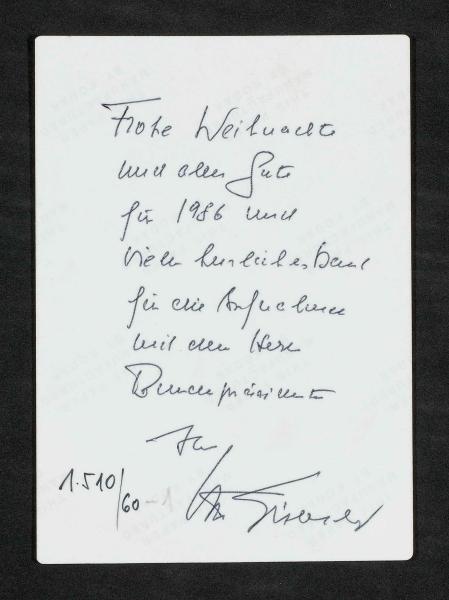 Frohe Weihnachten
und alles Gute
für 1986 und
vielen herzlichen Dank
für die Aufnahmen
mit dem Herrn
Bundespräsidenten
Ihr
1.510/60-1